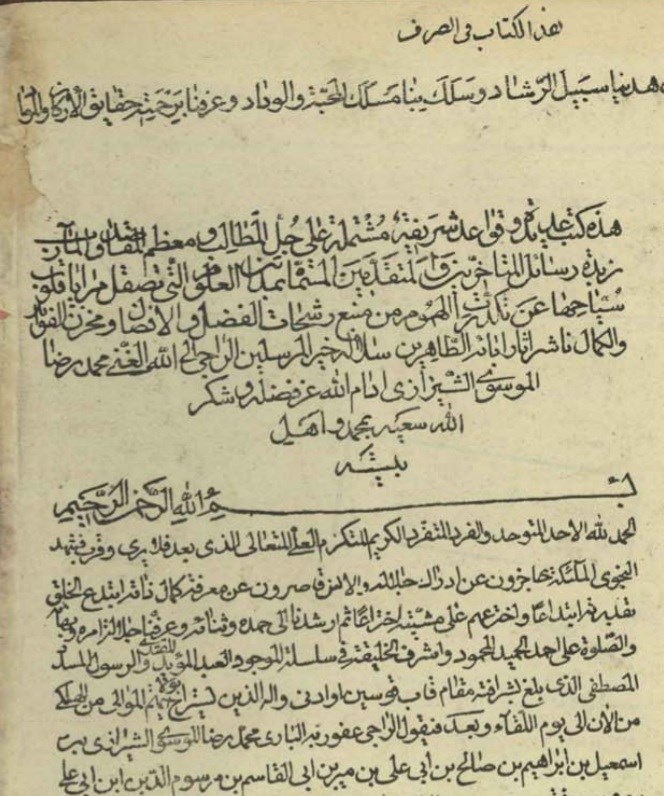 هذا الكتاب في الصرف
هدينا سبيل الرشاد وسلك بنا مسلك المحبة والوداد وعرفنا برحمته حقايق
هذه كتب عديدة وقواعد شريفة مشتملة على جل المطالب ومعظم المقاصد والمآرب
زبدة رسائل المتأخرين والمتقدمين العلوم التي تصقل مرايا قلوب
عن الهموم من منبع رشحات الفضل والافضل ومخزن
والكمال ناشر اثار ابائه الطاهرين سلالة خير المرسلين الراجي الى الله الغني محمد رضا
الموسوي الشيرازي ادام الله عز فضله وشكر
الله سعيه بمحمد واهل
بيته
بسم الله الرحمن الرحيم
الحمد لله الاحد المتوحد والفرد المتفرد الكريم المتكرم العلي المتعالي الذي بعد فلا يرى وقرب فشهد
النجوى الملئكة عاجزون عن ادراك جلاله والانس قاصرون عن معرفة كمال ذاته ابتدع الخلق
بقدرته ابتداعا واخترعهم على مشيته اختراعا ثم ارشدنا الى حمده وثنائه وعرفنا
والصلوة على احمد الحميد المحمود واشرف الخليقة في سلسلة الموجود العبد المؤيد والرسول المسدد
المصطفى الذي بلغ بشرافته مقام قاب قوسين او ادنى واله الذين
من الان الى يوم اللقاء وبعد فيقول الراجي عفو ربه الباري محمد رضا الموسوي الشيرازي بن
اسمعيل بن ابراهيم بن صالح بن ابي علي بن ميرين ابي القاسم بن الدين ابن ابي علي